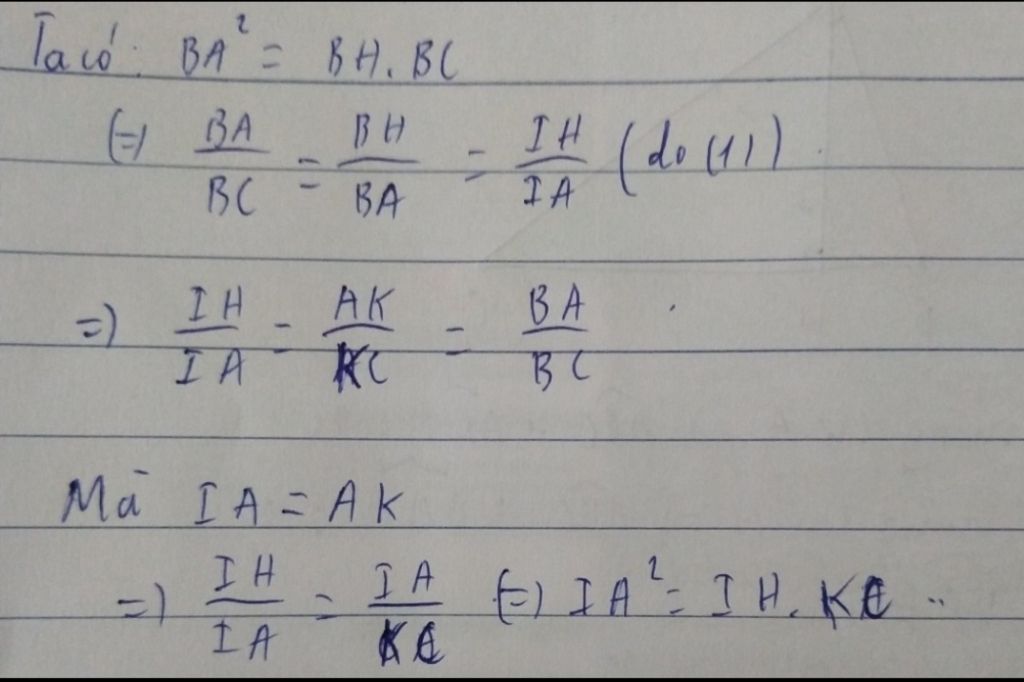 Ta có: BA² = BH. BC
(=) BA/BC = BH/BA = IH/IA (do (1))
=) IH/IA = AK/KC = BA/BC .
Mà IA = AK
=) IH/IA = IA/KC (=) IA² = IH. KC ..